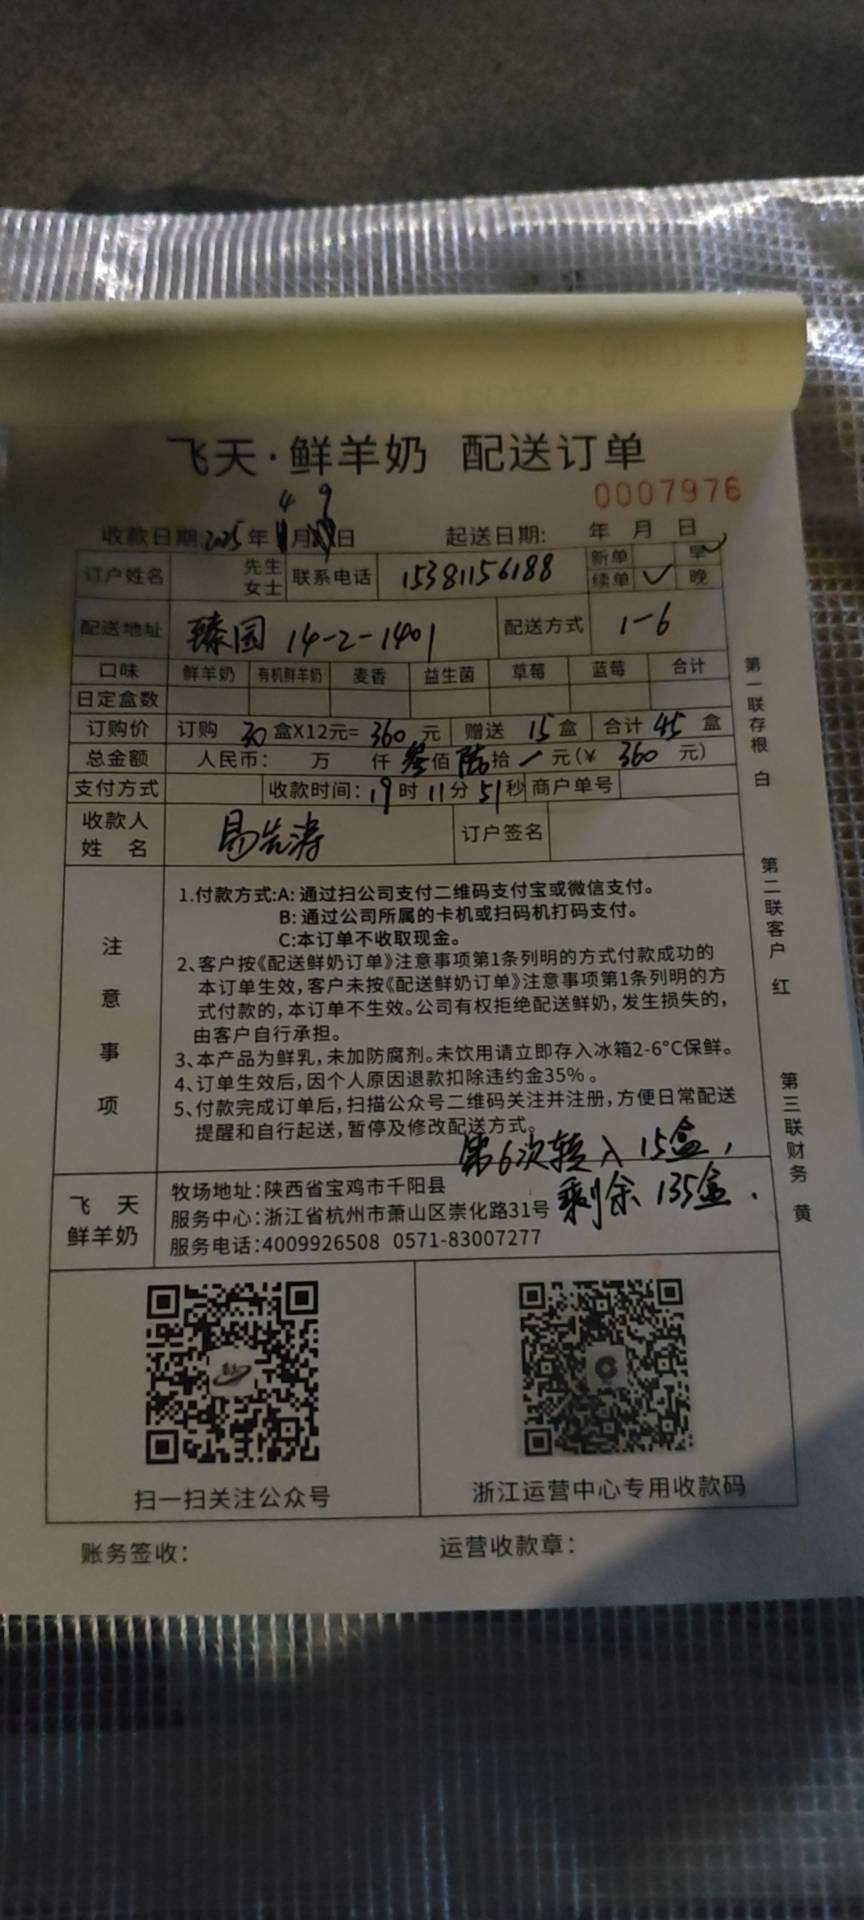 飞天·鲜羊奶 配送订单
0007976
收款日期:2025年4月9日 起送日期: 年 月 日
订户姓名 先生 女士 联系电话 15381156188 新单 早 续单 ✓ 晚
配送地址 臻园 14-2-1401 配送方式 1-6
口味 鲜羊奶 有机鲜羊奶 麦香 益生菌 草莓 蓝莓 合计
日定盒数
订购价 订购 30 盒X12元= 360 元 赠送 15 盒 合计 45 盒
总金额 人民币: 万 仟 叁佰 陆拾 元(¥ 360 元)
支付方式 收款时间: 19时 11分 51秒 商户单号
收款人 姓名 易先涛 订户签名
注意事项
1.付款方式:A: 通过扫公司支付二维码支付宝或微信支付。
B: 通过公司所属的卡机或扫码机打码支付。
C:本订单不收取现金。
2、客户按《配送鲜奶订单》注意事项第1条列明的方式付款成功的
本订单生效,客户未按《配送鲜奶订单》注意事项第1条列明的方
式付款的,本订单不生效。公司有权拒绝配送鲜奶,发生损失的,
由客户自行承担。
3、本产品为鲜乳,未加防腐剂。未饮用请立即存入冰箱2-6°C保鲜。
4、订单生效后,因个人原因退款扣除违约金35% 。
5、付款完成订单后,扫描公众号二维码关注并注册,方便日常配送
提醒和自行起送,暂停及修改配送方式。
第6次转入15盒,
剩余 135盒.
飞天 鲜羊奶
牧场地址:陕西省宝鸡市千阳县
服务中心:浙江省杭州市萧山区崇化路31号
服务电话:4009926508 0571-83007277
扫一扫关注公众号
浙江运营中心专用收款码
账务签收: 运营收款章:
第一联存根 白
第二联客户 红
第三联财务 黄